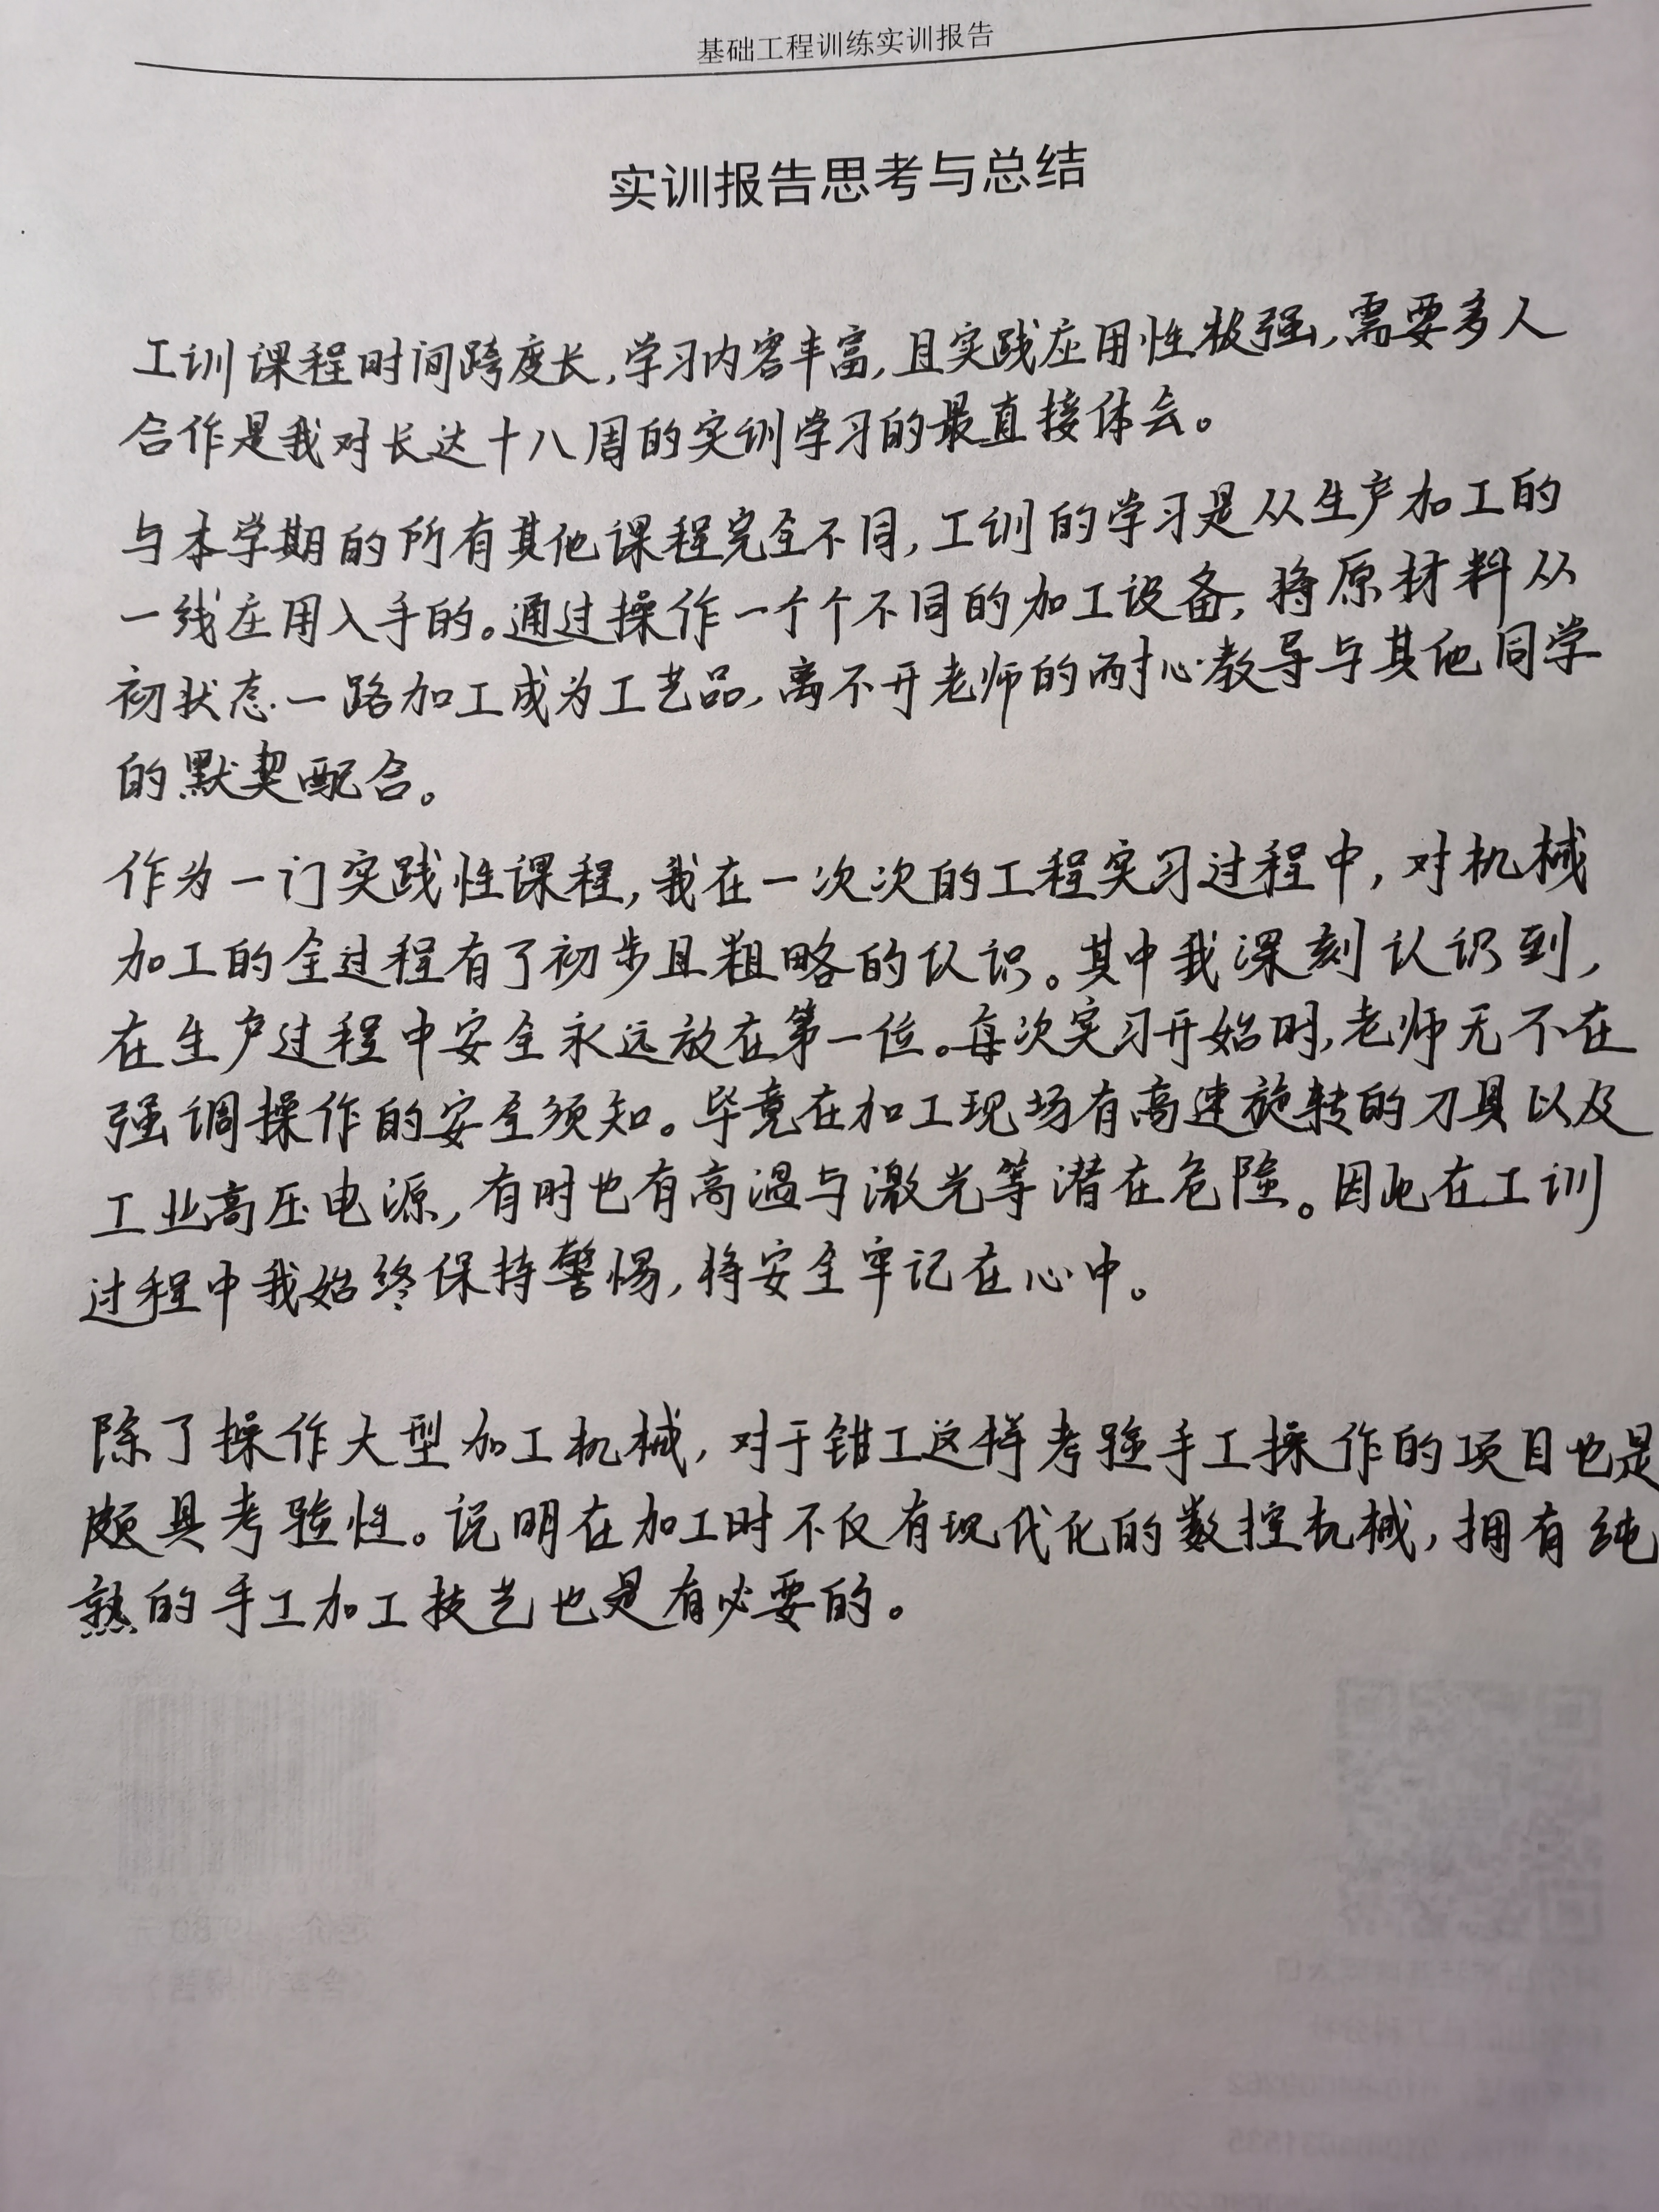 基础工程训练实训报告
实训报告思考与总结
工训课程时间跨度长,学习内容丰富,且实践应用性极强,需要多人
合作是我对长达十八周的实训学习的最直接体会。
与本学期的所有其他课程完全不同,工训的学习是从生产加工的
一线应用入手的。通过操作一个个不同的加工设备,将原材料从
初状态一路加工成为工艺品,离不开老师的耐心教导与其他同学
的默契配合。
作为一门实践性课程,我在一次次的工程实习过程中,对机械
加工的全过程有了初步且粗略的认识。其中我深刻认识到,
在生产过程中安全永远放在第一位。每次实习开始时,老师无不在
强调操作的安全须知。毕竟在加工现场有高速旋转的刀具以及
工业高压电源,有时也有高温与激光等潜在危险。因此在工训
过程中我始终保持警惕,将安全牢记在心中。
除了操作大型加工机械,对于钳工这样考验手工操作的项目也是
颇具考验性。说明在加工时不仅有现代化的数控机械,拥有纯
熟的手工加工技艺也是有必要的。